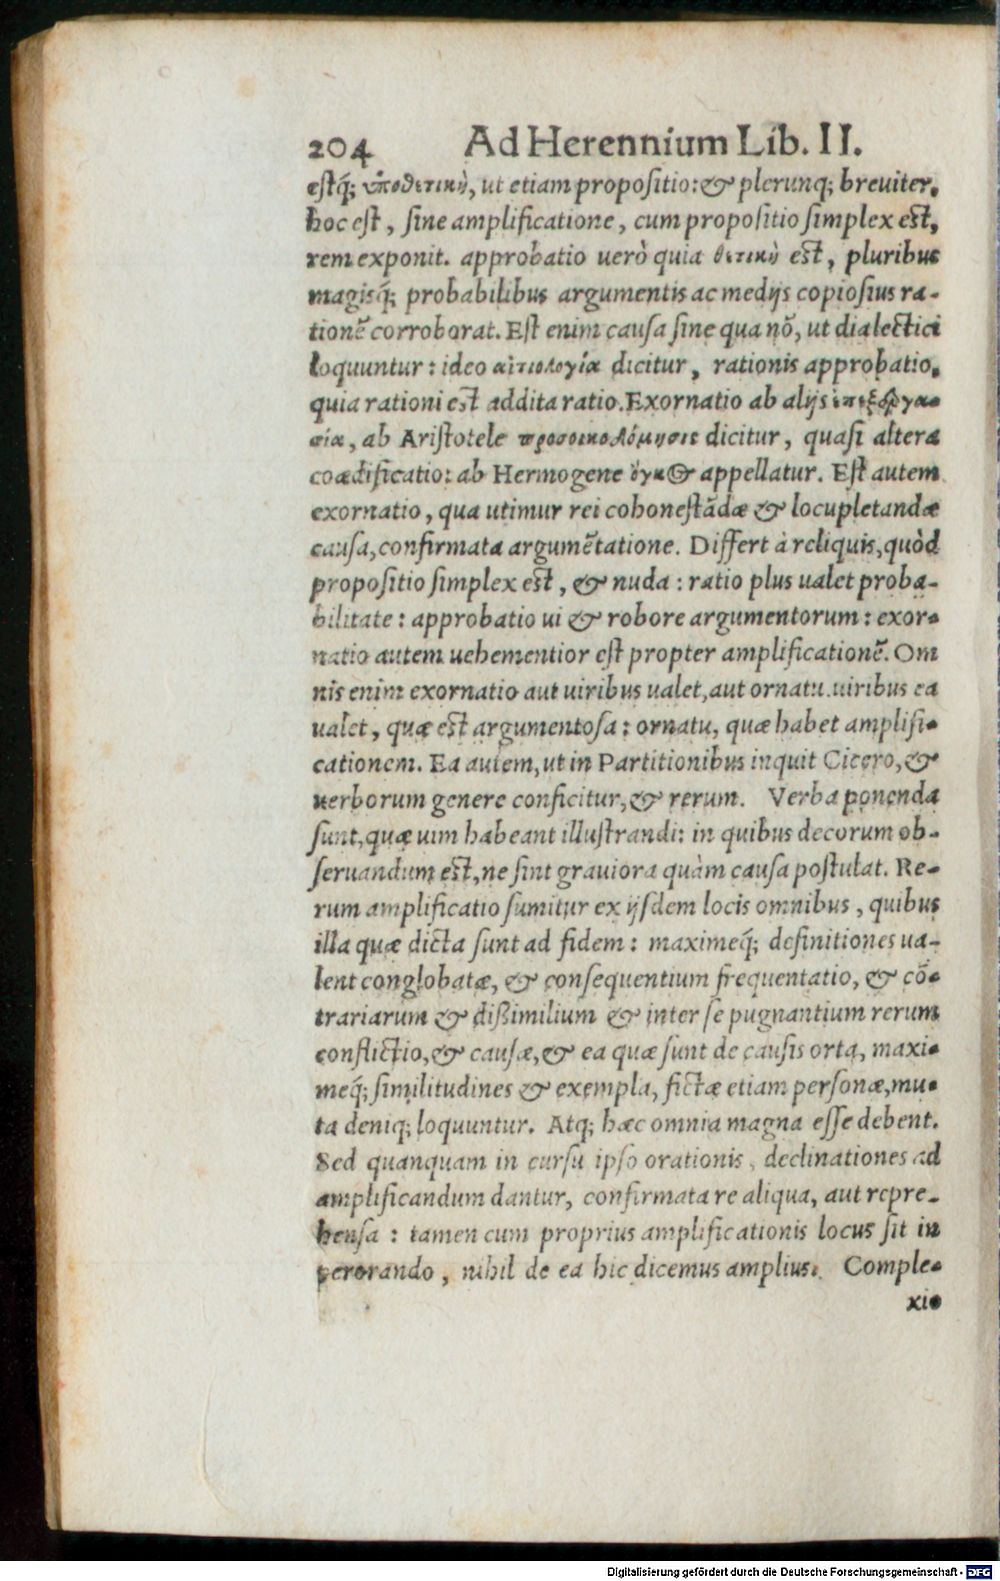 204 Ad Herennium Lib. II.
estq́; ὑποθετικὴ, ut etiam propositio: & plerunq; breuiter,
hoc est, sine amplificatione, cum propositio simplex est,
rem exponit. approbatio uerò quia θετικὴ est, pluribus
magisq́; probabilibus argumentis ac medijs copiosius ra-
tionẽ corroborat. Est enim causa sine qua nõ, ut dialectici
loquuntur: ideo αἰτιολογία dicitur, rationis approbatio,
quia rationi est addita ratio. Exornatio ab alijs ἐπεξεργα-
σία, ab Aristotele προσοικοδόμησις dicitur, quasi altera
coædificatio: ab Hermogene ὄγκος appellatur. Est autem
exornatio, qua utimur rei cohonestãdæ & locupletandæ
causa, confirmata argumẽtatione. Differt à reliquis, quòd
propositio simplex est, & nuda: ratio plus ualet proba-
bilitate: approbatio ui & robore argumentorum: exor-
natio autem uehementior est propter amplificationẽ. Om
nis enim exornatio aut uiribus ualet, aut ornatu. uiribus ea
ualet, quæ est argumentosa: ornatu, quæ habet amplifi-
cationem. Ea autem, ut in Partitionibus inquit Cicero, &
uerborum genere conficitur, & rerum. Verba ponenda
sunt, quæ uim habeant illustrandi: in quibus decorum ob-
seruandum est, ne sint grauiora quàm causa postulat. Re-
rum amplificatio sumitur ex ijsdem locis omnibus, quibus
illa quæ dicta sunt ad fidem: maximeq́; definitiones ua-
lent conglobatæ, & consequentium frequentatio, & cõ-
trariarum & dißimilium & inter se pugnantium rerum
conflictio, & causæ, & ea quæ sunt de causis orta, maxi-
meq́; similitudines & exempla, fictæ etiam personæ, mu-
ta deniq; loquuntur. Atq; hæc omnia magna esse debent.
Sed quanquam in cursu ipso orationis, declinationes ad
amplificandum dantur, confirmata re aliqua, aut repre-
hensa: tamen cum proprius amplificationis locus sit in
perorando, nihil de ea hic dicemus amplius. Comple-
xio
Digitalisierung gefördert durch die Deutsche Forschungsgemeinschaft - DFG